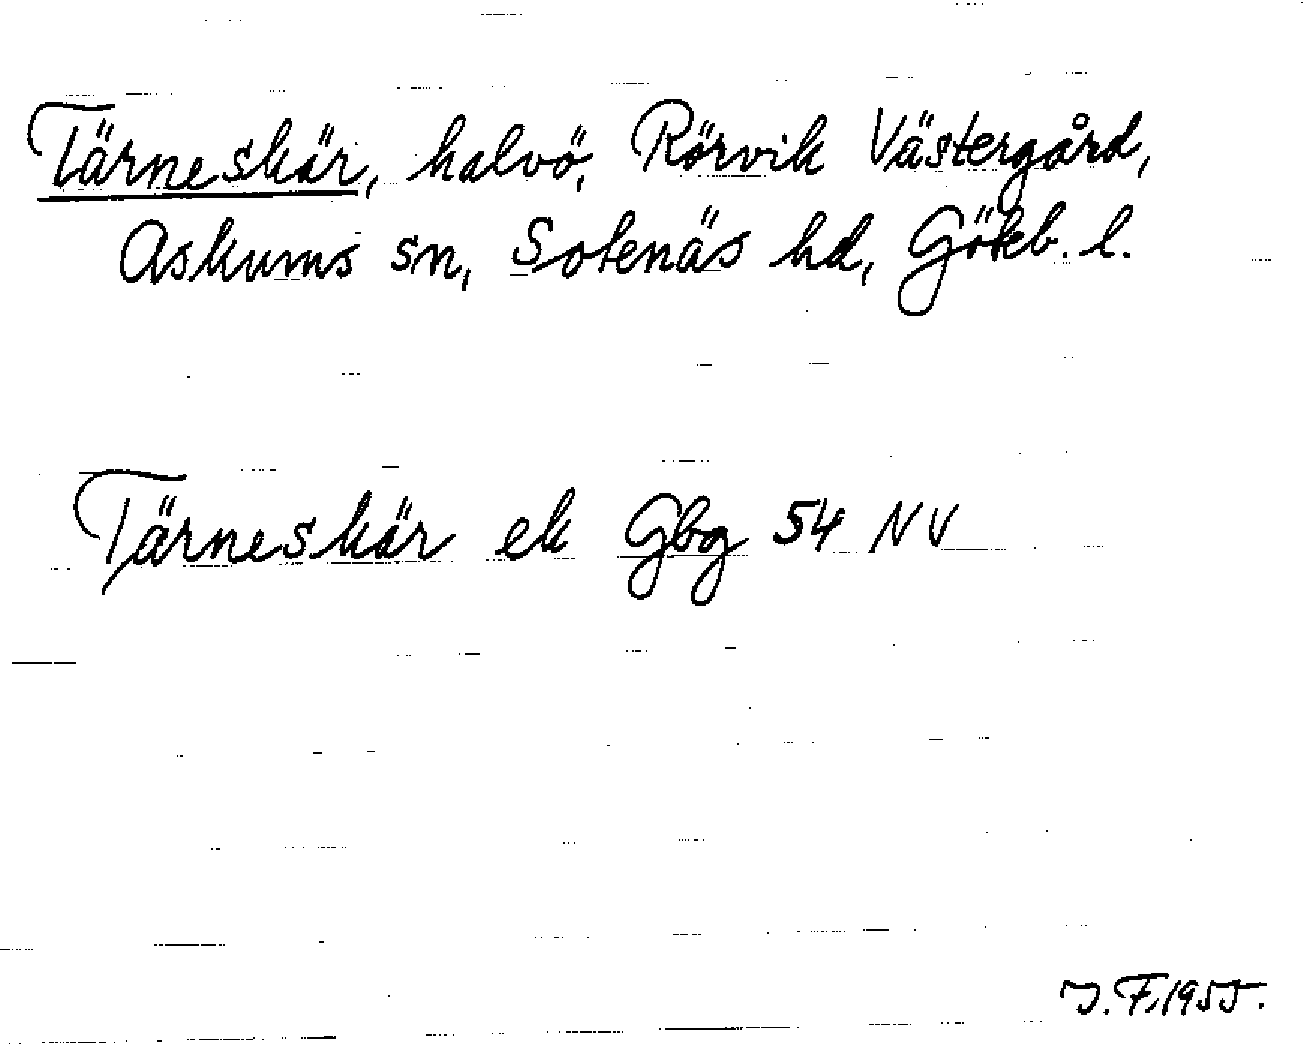 Tärneskär, halvö, Rörvik Västergård,
Askums sn, Sotenäs hd, Göteb. l.
Tärneskär ek Gbg 54 NV
J. F. 1955.